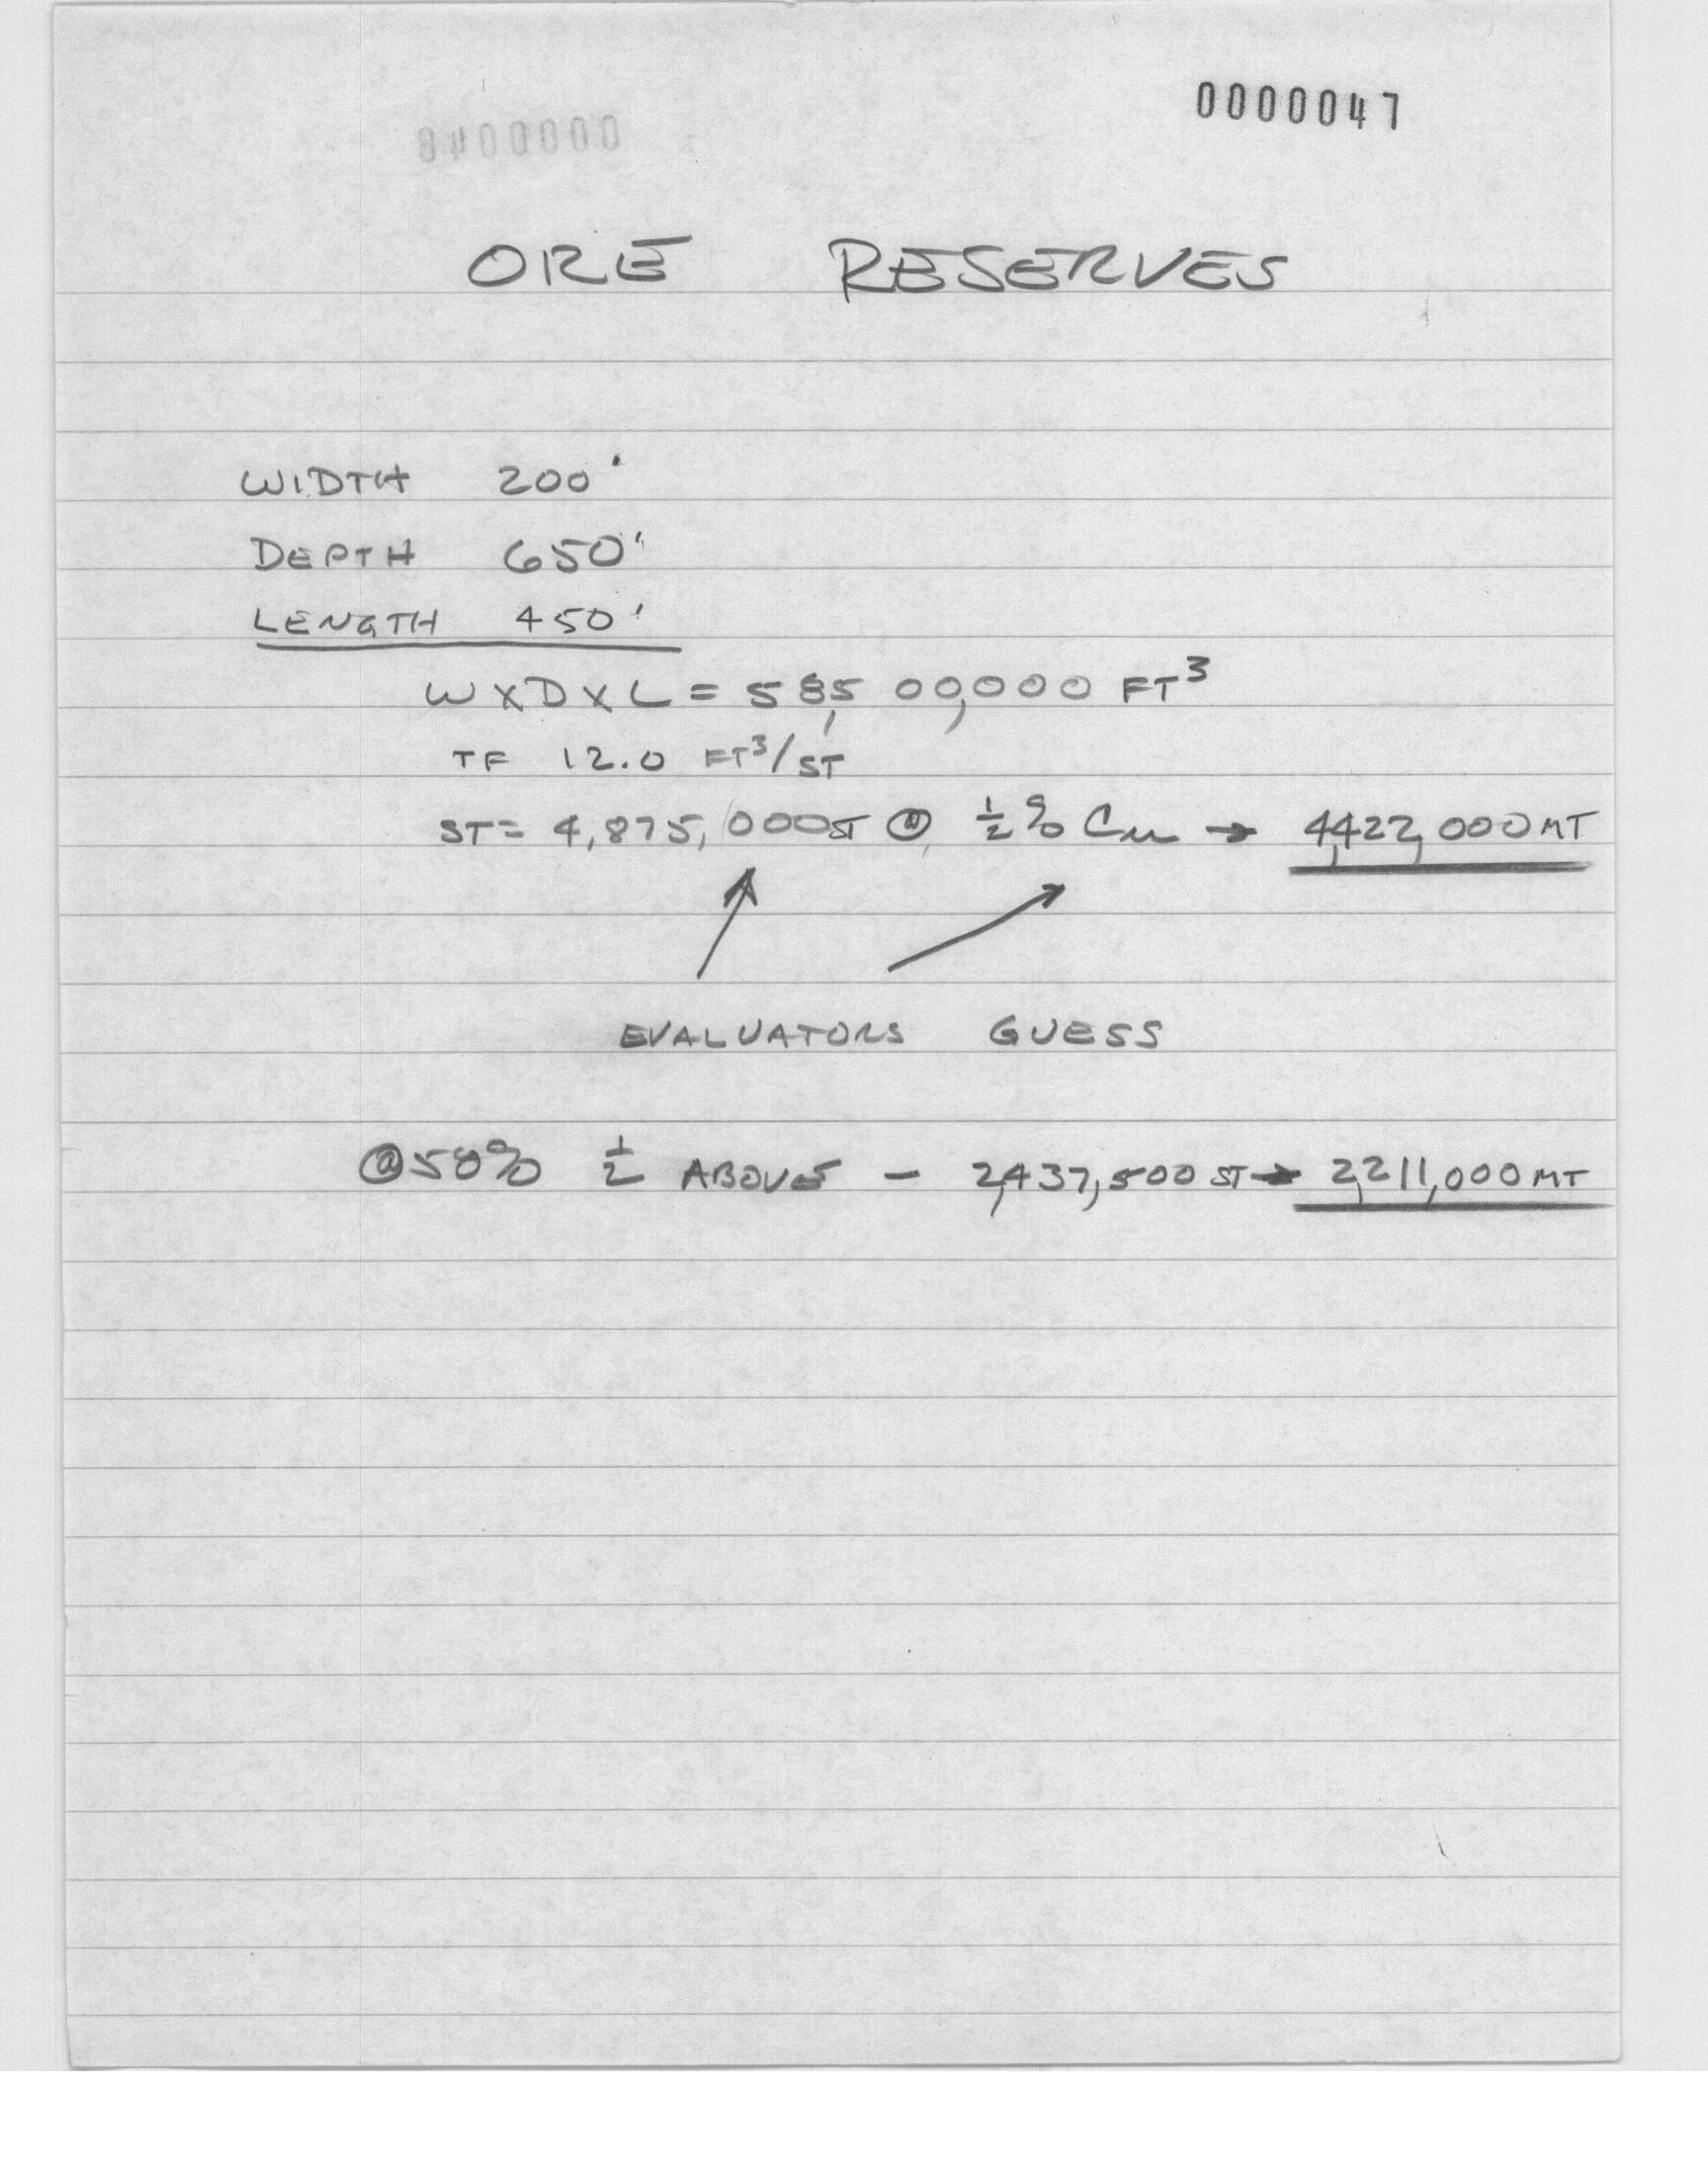 0000047
0000048
ORE RESERVES
WIDTH 200'
DEPTH 650'
LENGTH 450'
W X D X L = 58,500,000 FT³
TF 12.0 FT³/ST
ST = 4,875,000 ST @ ½% Cu → 4,422,000 MT
EVALUATORS GUESS
@50% ½ ABOVE - 2,437,500 ST → 2,211,000 MT